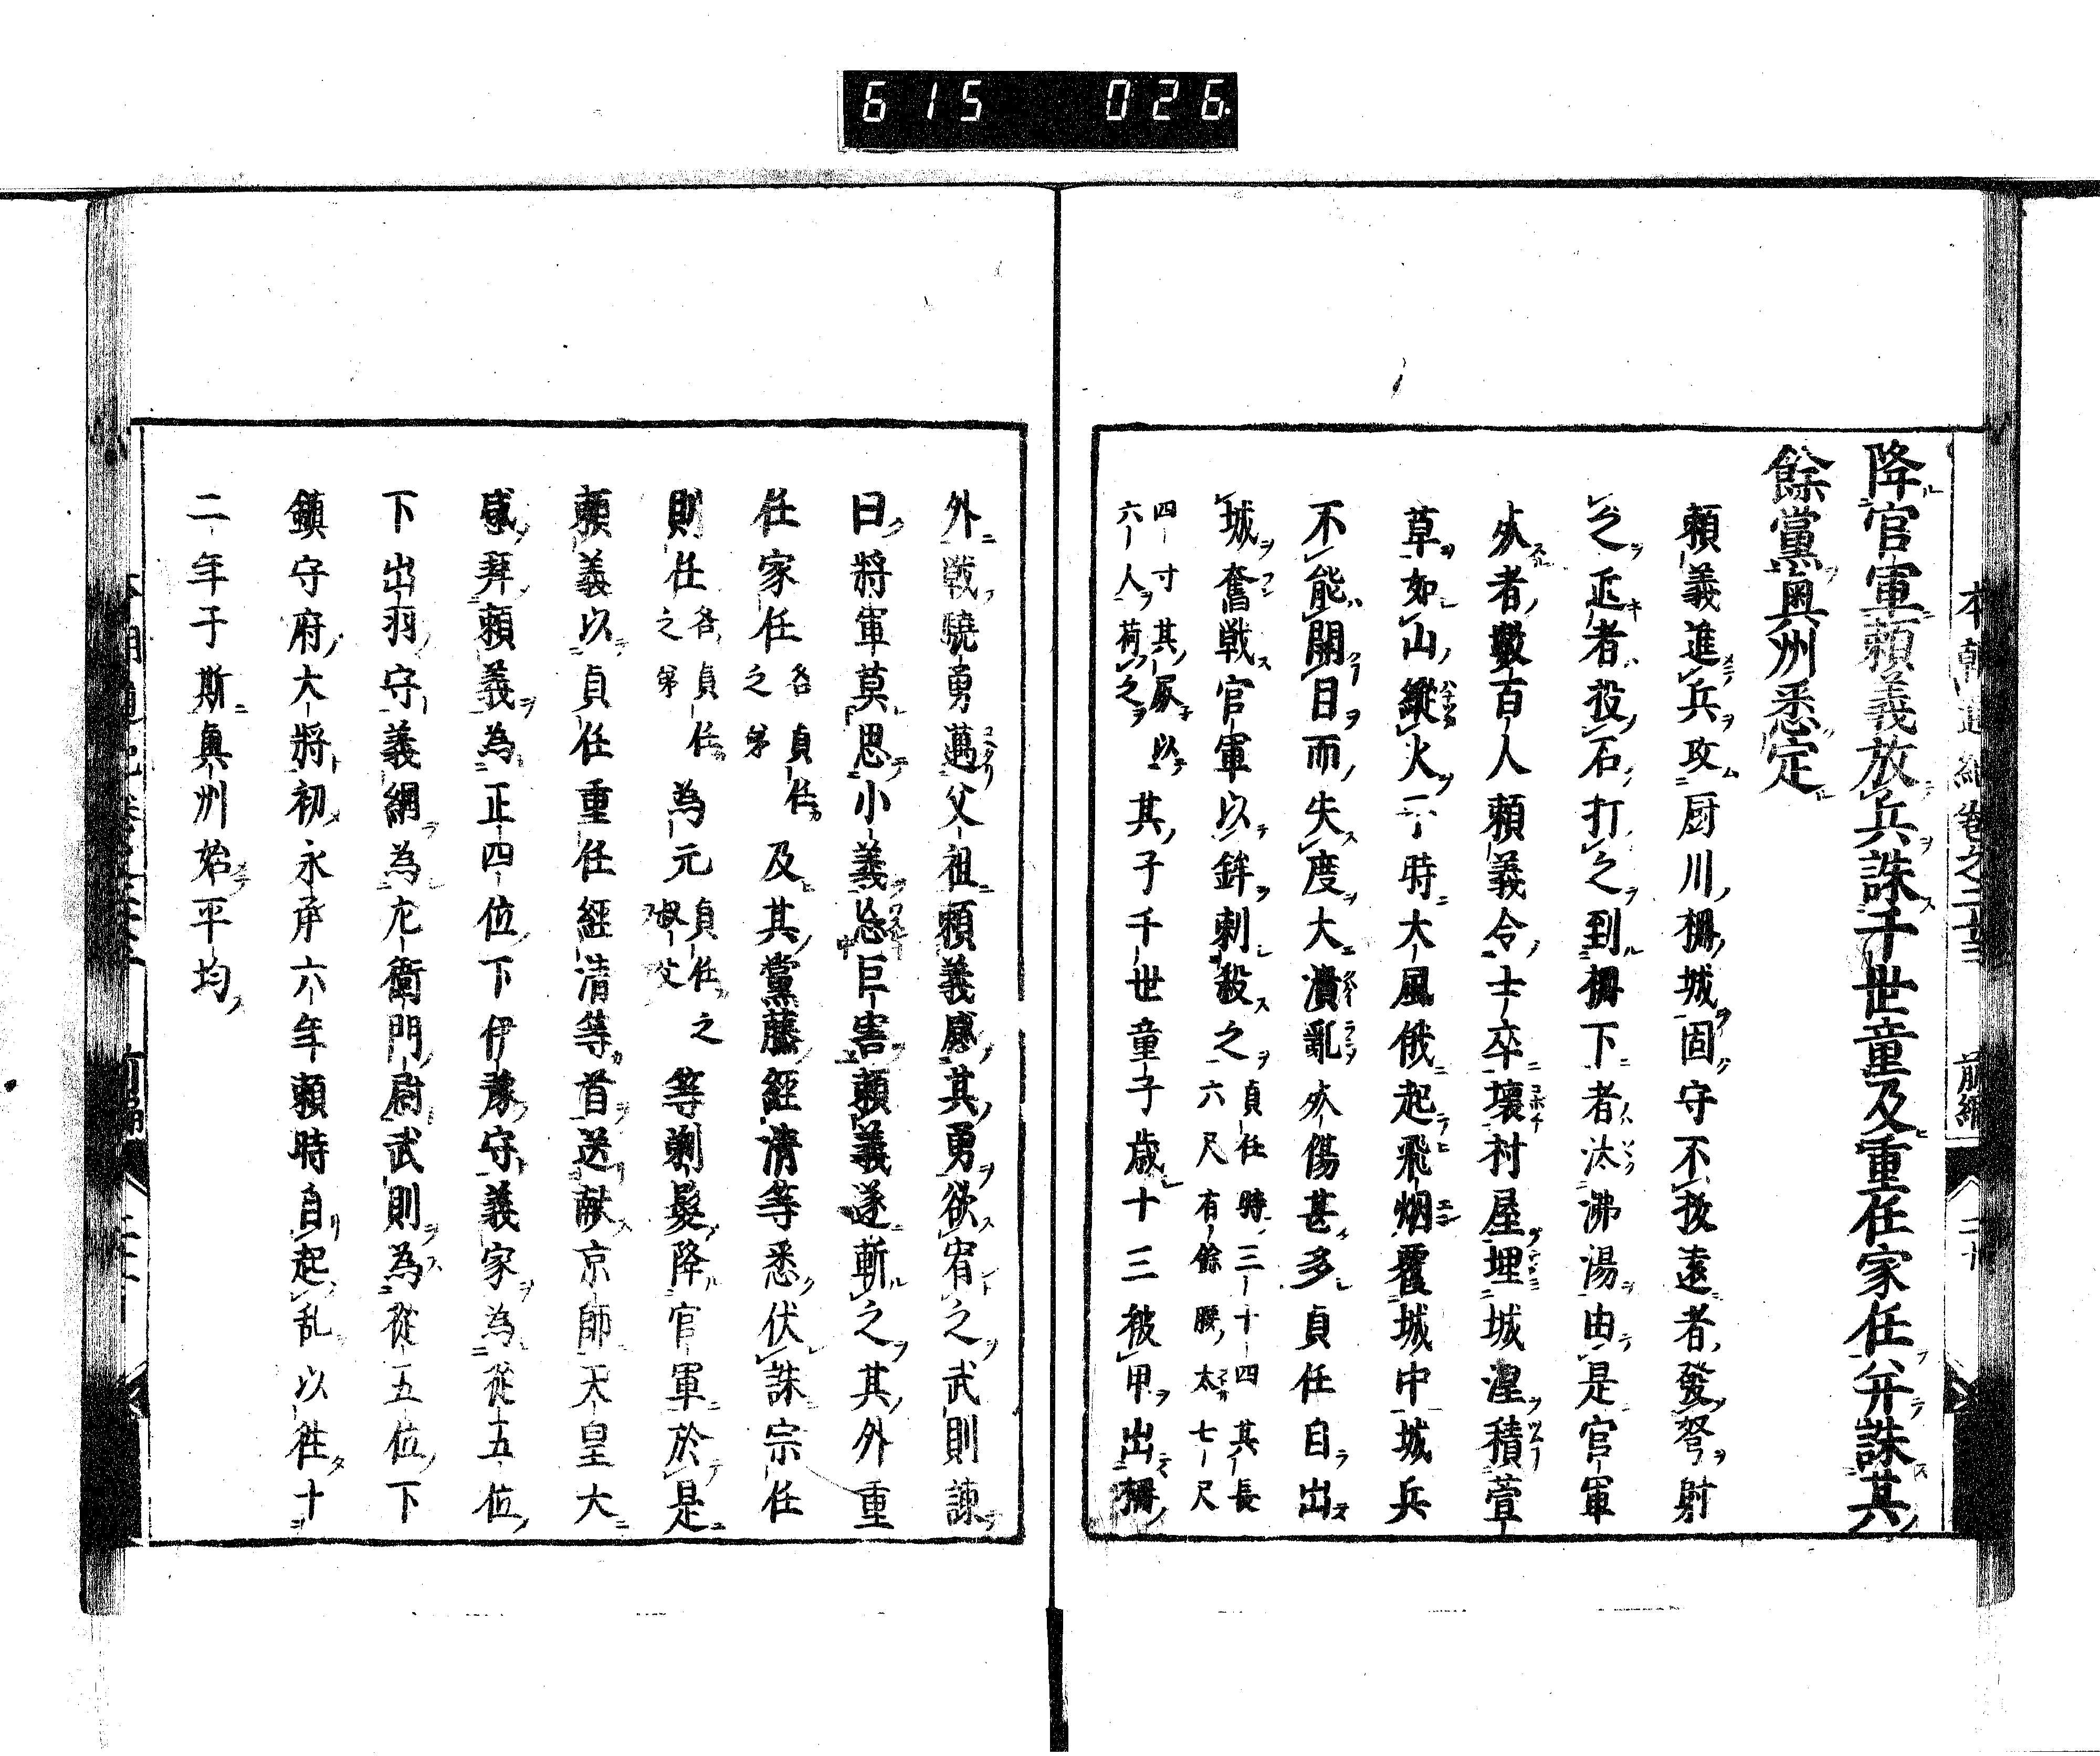 615 026
本朝通紀卷之二十三 前編 二十
降官軍頼義放兵誅千世童及重任家任并誅其
餘黨奥州悉定
頼義進兵攻厨川柵城固守不抜遠者發弩射
之近者投石打之到柵下者汰沸湯由是官軍
死者數百人頼義令士卒壊村屋埋城湟積萱
草如山縦火一時大風俄起飛烟覆城中城兵
不能開目而失度大潰亂死傷甚多貞任自出
城奮戦官軍以鉾刺殺之貞任時三十四其長六尺有餘腰太七尺
四寸其尿以六人荷之其子千世童子歳十三被甲出柵
外戦驍勇邁父祖頼義感其勇欲宥之武則諫
曰將軍莫思小義忘巨害頼義遂斬之其外重
任家任各貞任之弟及其黨藤經清等悉伏誅宗任
則任各貞任之弟為元貞任之叔父等剃髮降官軍於是
頼義以貞任重任經清等首送献京師天皇大
感拜頼義為正四位下伊豫守義家為從五位
下出羽守義綱為左衛門尉武則為從五位下
鎮守府大將初永承六年頼時自起乱以徃十
二年于斯奥州始平均